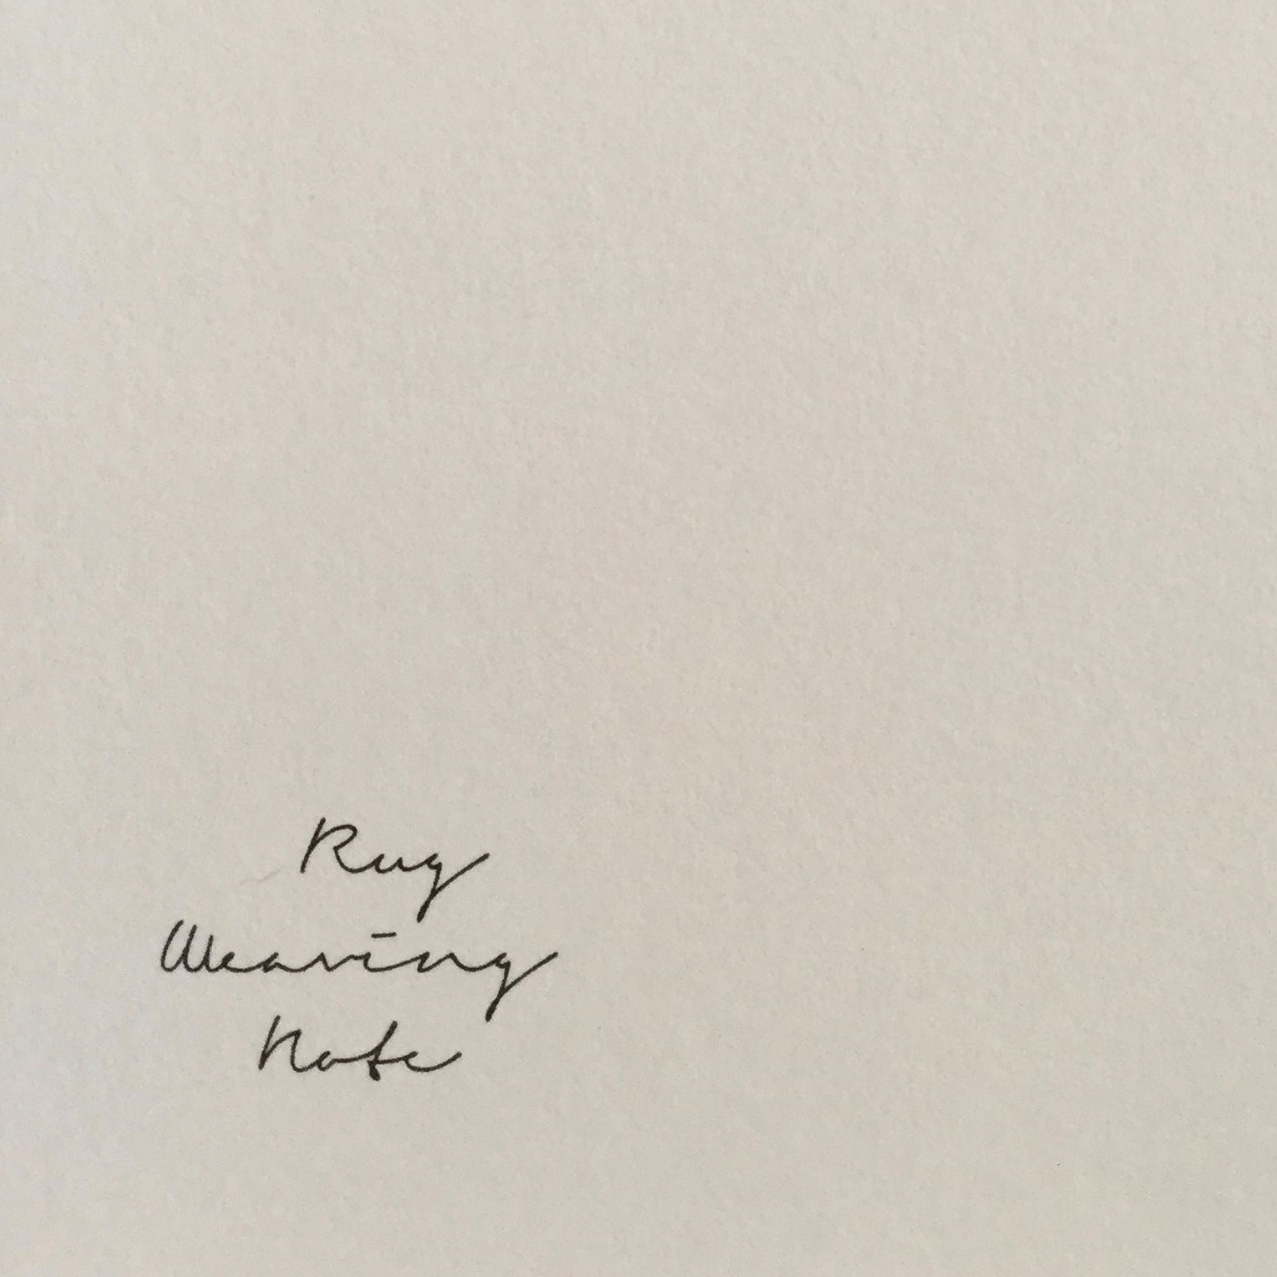 Rug
Weaving
Note